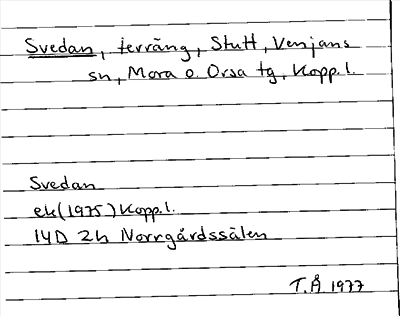 Svedan, terräng, Stutt, Venjans
sn, Mora o. Orsa tg, Kopp. l.
Svedan
ek (1975) Kopp. l.
14D 2h Norrgårdssälen
T.Å 1977